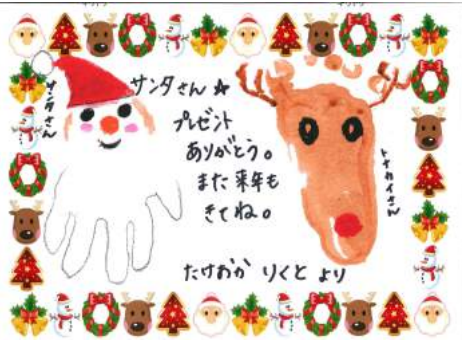 サンタさん
サンタさん☆
プレゼント
ありがとう。
また来年も
きてね。
トナカイさん
たけおか りくと より